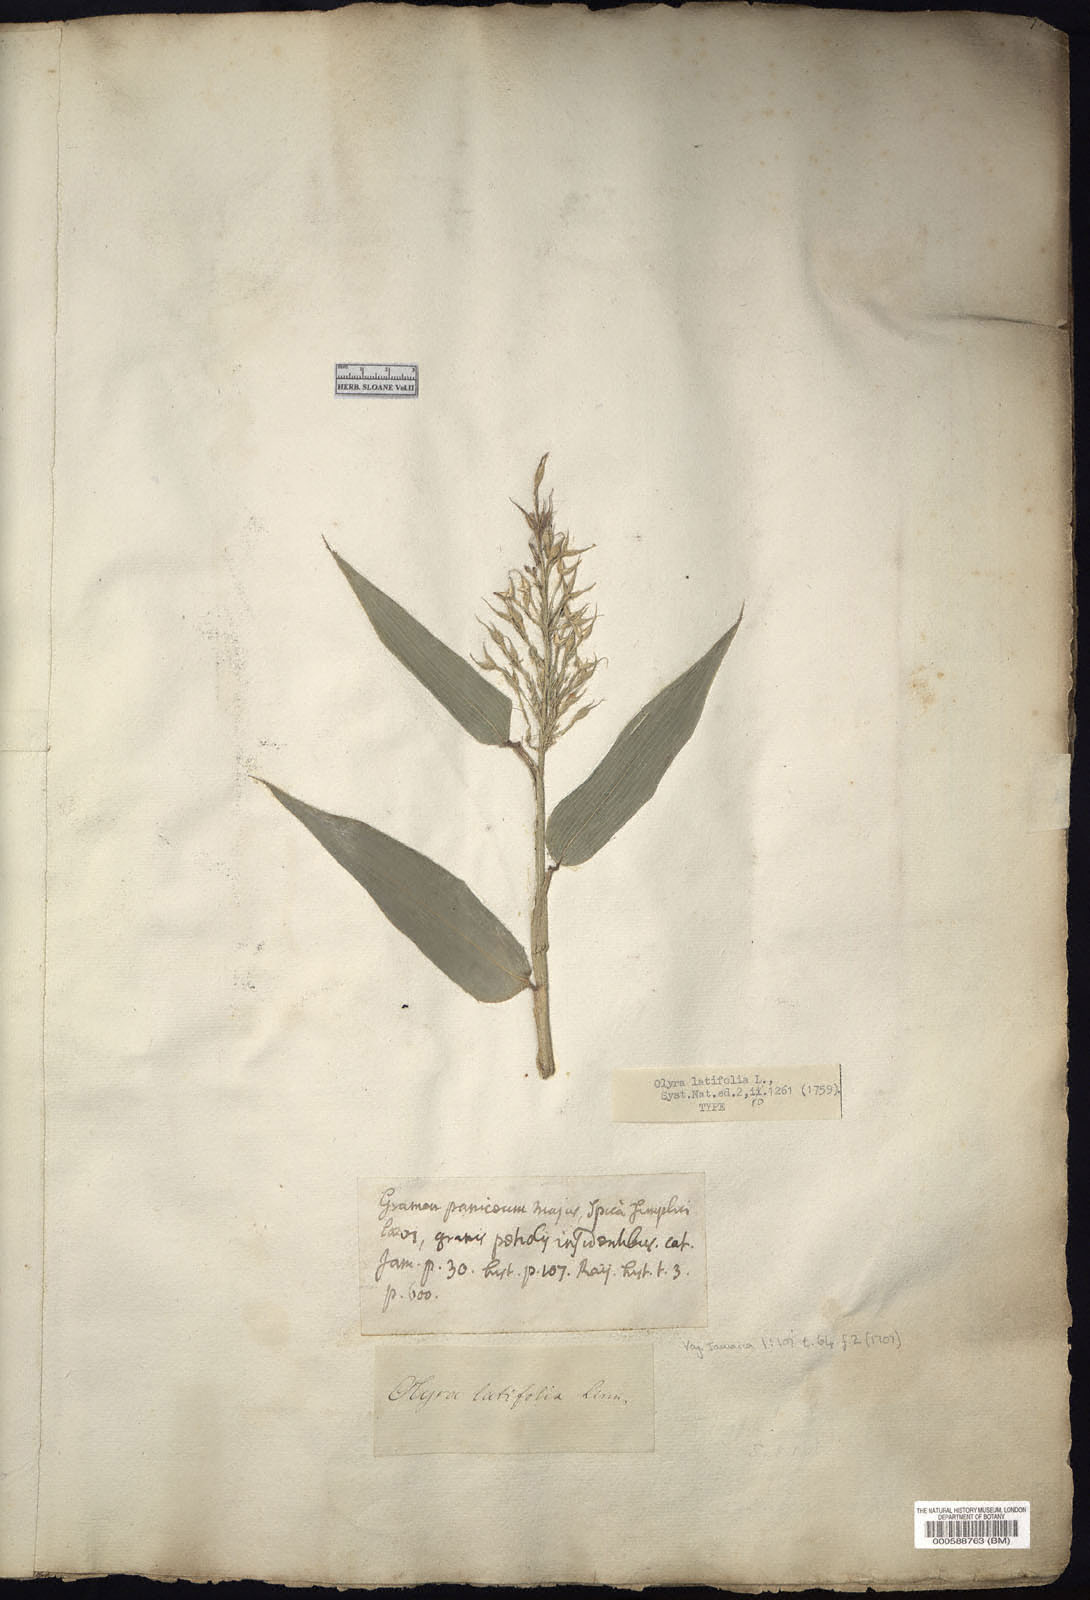 HERB. SLOANE Vol.II
Olyra latifolia L.,
Syst.Nat.ed.2,ii.1261 (1759).
TYPE 10
Gramen paniceum majus, Spicâ Simplici
lævi, granis petiolis insidentibus. cat.
Jam. p. 30. hist. p. 107. Raij. hist. t. 3.
p. 600.
Voy. Jamaica 1: 107 t. 64 f. 2 (1707)
Olyra latifolia Linn.
THE NATURAL HISTORY MUSEUM, LONDON
DEPARTMENT OF BOTANY
000588763 (BM)